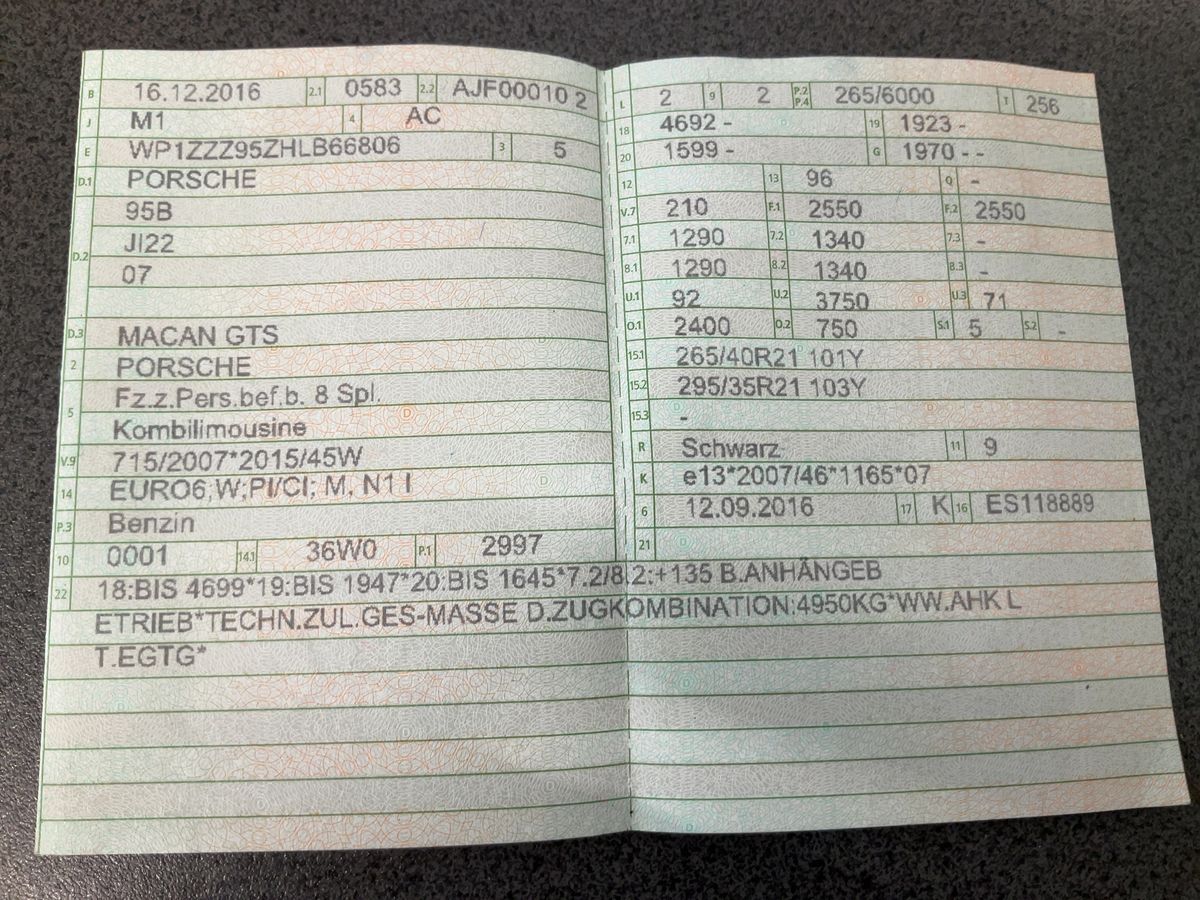 B 16.12.2016 2.1 0583 2.2 AJF00010 2
J M1 4 AC
E WP1ZZZ95ZHLB66806 3 5
D.1 PORSCHE
D.2 95B
JI22
07
D.3 MACAN GTS
2 PORSCHE
5 Fz.z.Pers.bef.b. 8 Spl.
Kombilimousine
V.9 715/2007*2015/45W
14 EURO6;W;PI/CI; M, N1 I
P.3 Benzin
10 0001 14.1 36W0 P.1 2997
L 2 9 2 P.2 P.4 265/6000 T 256
18 4692 - 19 1923 -
20 1599 - G 1970 - -
12 13 96 Q -
V.7 210 F.1 2550 F.2 2550
7.1 1290 7.2 1340 7.3 -
8.1 1290 8.2 1340 8.3 -
U.1 92 U.2 3750 U.3 71
O.1 2400 O.2 750 S.1 5 S.2 -
15.1 265/40R21 101Y
15.2 295/35R21 103Y
15.3 -
R Schwarz 11 9
K e13*2007/46*1165*07
6 12.09.2016 17 K 16 ES118889
21
22 18:BIS 4699*19:BIS 1947*20:BIS 1645*7.2/8.2:+135 B.ANHÄNGEB
ETRIEB*TECHN.ZUL.GES-MASSE D.ZUGKOMBINATION:4950KG*WW.AHK L
T.EGTG*